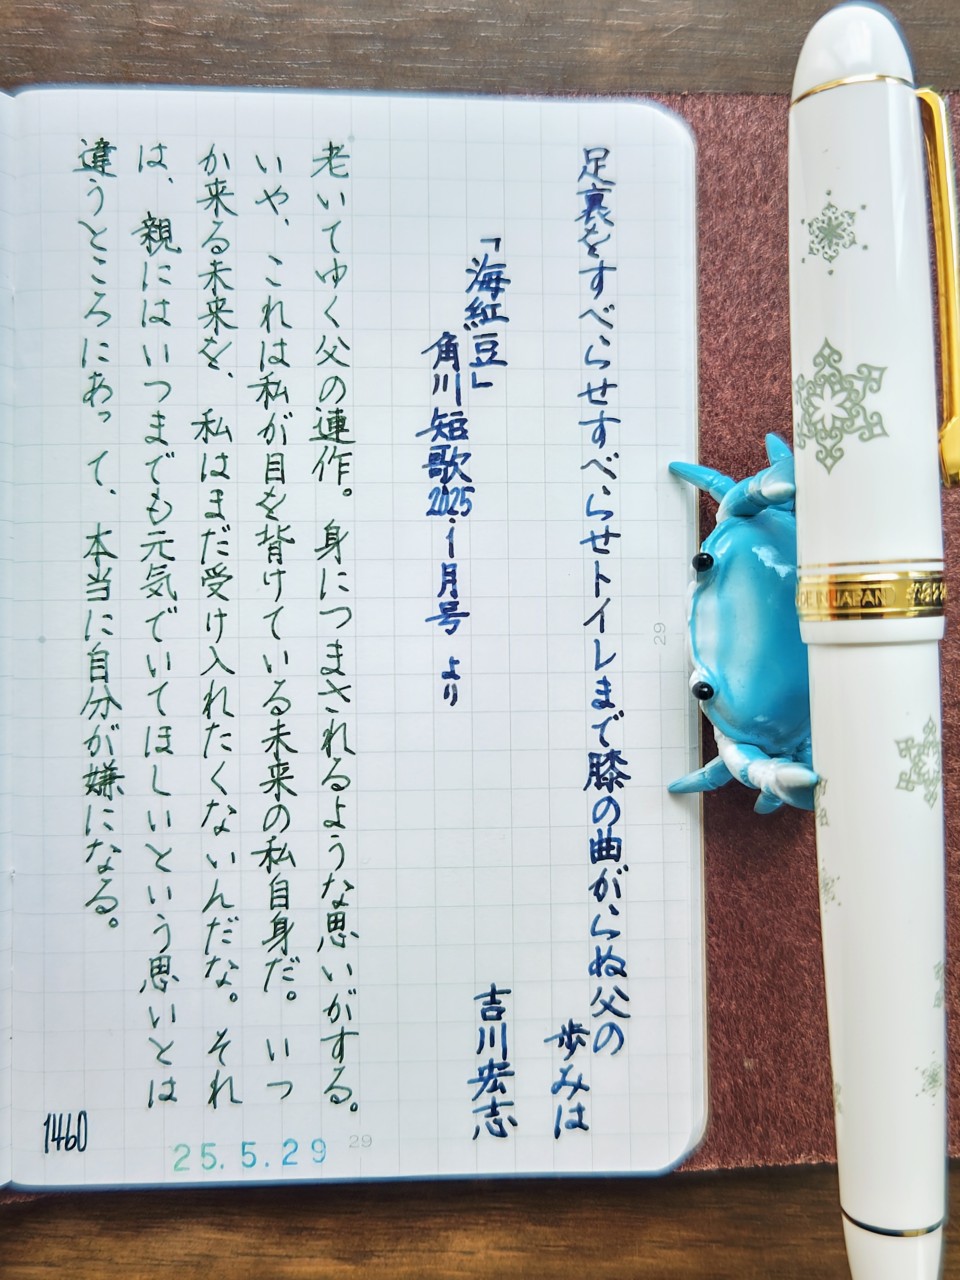 足裏をすべらせすべらせトイレまで膝の曲がらぬ父の
歩みは
吉川宏志
「海紅豆」
角川短歌2025.1月号 より
老いてゆく父の連作。身につまされるような思いがする。
いや、これは私が目を背けている未来の私自身だ。いつ
か来る未来を、私はまだ受け入れたくないんだな。それ
は、親にはいつまでも元気でいてほしいという思いとは
違うところにあって、本当に自分が嫌になる。
1460
25.5.29
29
29
DE IN JAPAN